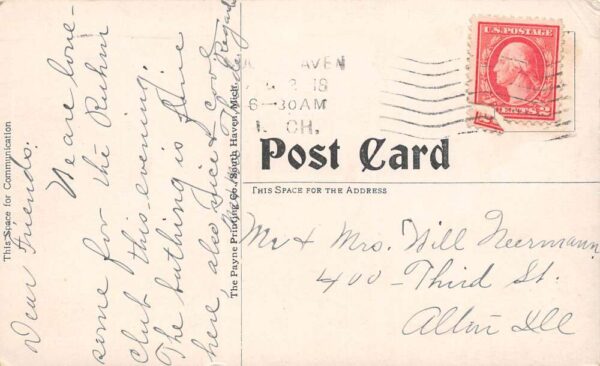 This Space for Communication
Dear Friends:
We are lone-
some for the
Club this evening.
The bathing is fine
here, also nice & cool
The Payne Printing Co., South Haven, Mich.
HAVEN
6-30AM
CH.
U.S.POSTAGE
CENTS 2
Post Card
THIS SPACE FOR THE ADDRESS
Mr & Mrs. Will Neermann
400 - Third St.
Alton Ill